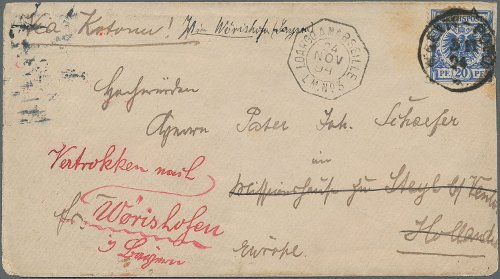 via Kotonu! Jetzt in Wörishofen (Bayern)
LOANGO A MARSEILLE
24
NOV
94
L.M. No 5
20 PF 20 PF
Hochwürden
Herrn Pater Joh. Schaefer
im
Missionshause zu Steyl b/ Venlo
Holland
Europa
Vertrokken nach
Wörishofen
Bayern